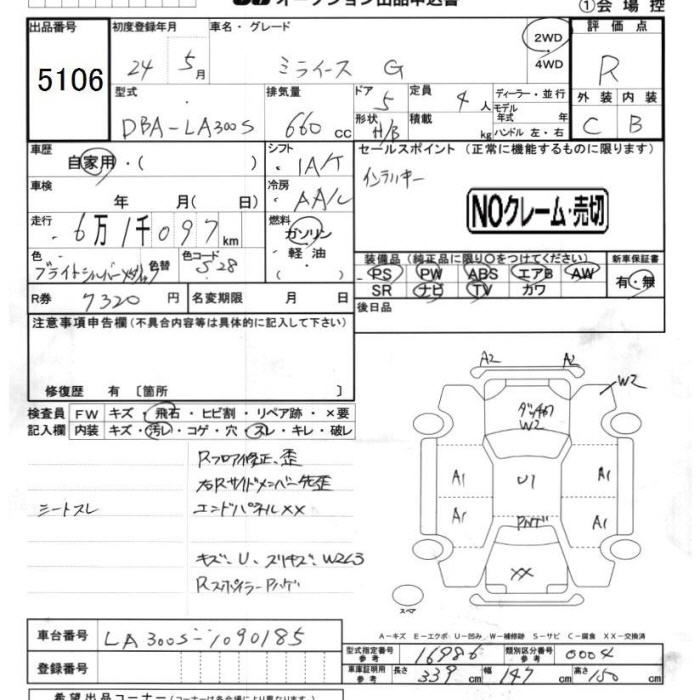 オークション出品申込書
①会場控
出品番号 初度登録年月 車名・グレード 評価点
5106 24年 5月 ミライース G 2WD R
・
4WD
型式 排気量 ドア 定員 ディーラー・並行 外装 内装
DBA-LA300S 660cc 5 4人 モデル年式 年 C B
形状 H/B 積載 kg ハンドル 左・右
車歴 シフト セールスポイント (正常に機能するものに限ります)
自家用・( ) ・IA/T インテリキー
車検 冷房
年 月( 日) ・AA/C NOクレーム・売切
走行 燃料
6万1千097km ガソリン
軽油
色 色替 色コード 装備品(純正品に限り○をつけてください) 新車保証書
ブライトシルバーメタリック S28 PS PW ABS エアB AW 有・無
SR ナビ TV カワ
R券 7320円 名変期限 月 日 後日品
注意事項申告欄(不具合内容等は具体的に記入して下さい)
修復歴 有 〔箇所 〕
検査員 FW キズ・飛石・ヒビ割・リペア跡・×要
記入欄 内装 キズ・汚レ・コゲ・穴・スレ・キレ・破レ
Rフロア修正、歪
右Rサイドメンバー先歪
シートスレ エンドパネルXX
キズ・U・スリキズ・W2L3
RスポイラーPハゲ
A2 A2
W2
W2
A1 A1
U1
A1 A1
Pハゲ
XX
スペア
A-キズ E-エクボ U-凹み W-補修跡 S-サビ C-腐食 XX-交換済
車台番号 LA300S-1090185 型式指定番号 参考 16986 類別区分番号 参考 0004
登録番号 車庫証明用 参考 長さ 339cm 幅 147cm 高さ 150cm
希望出品コーナー(コーナーは各会場により異なります。)